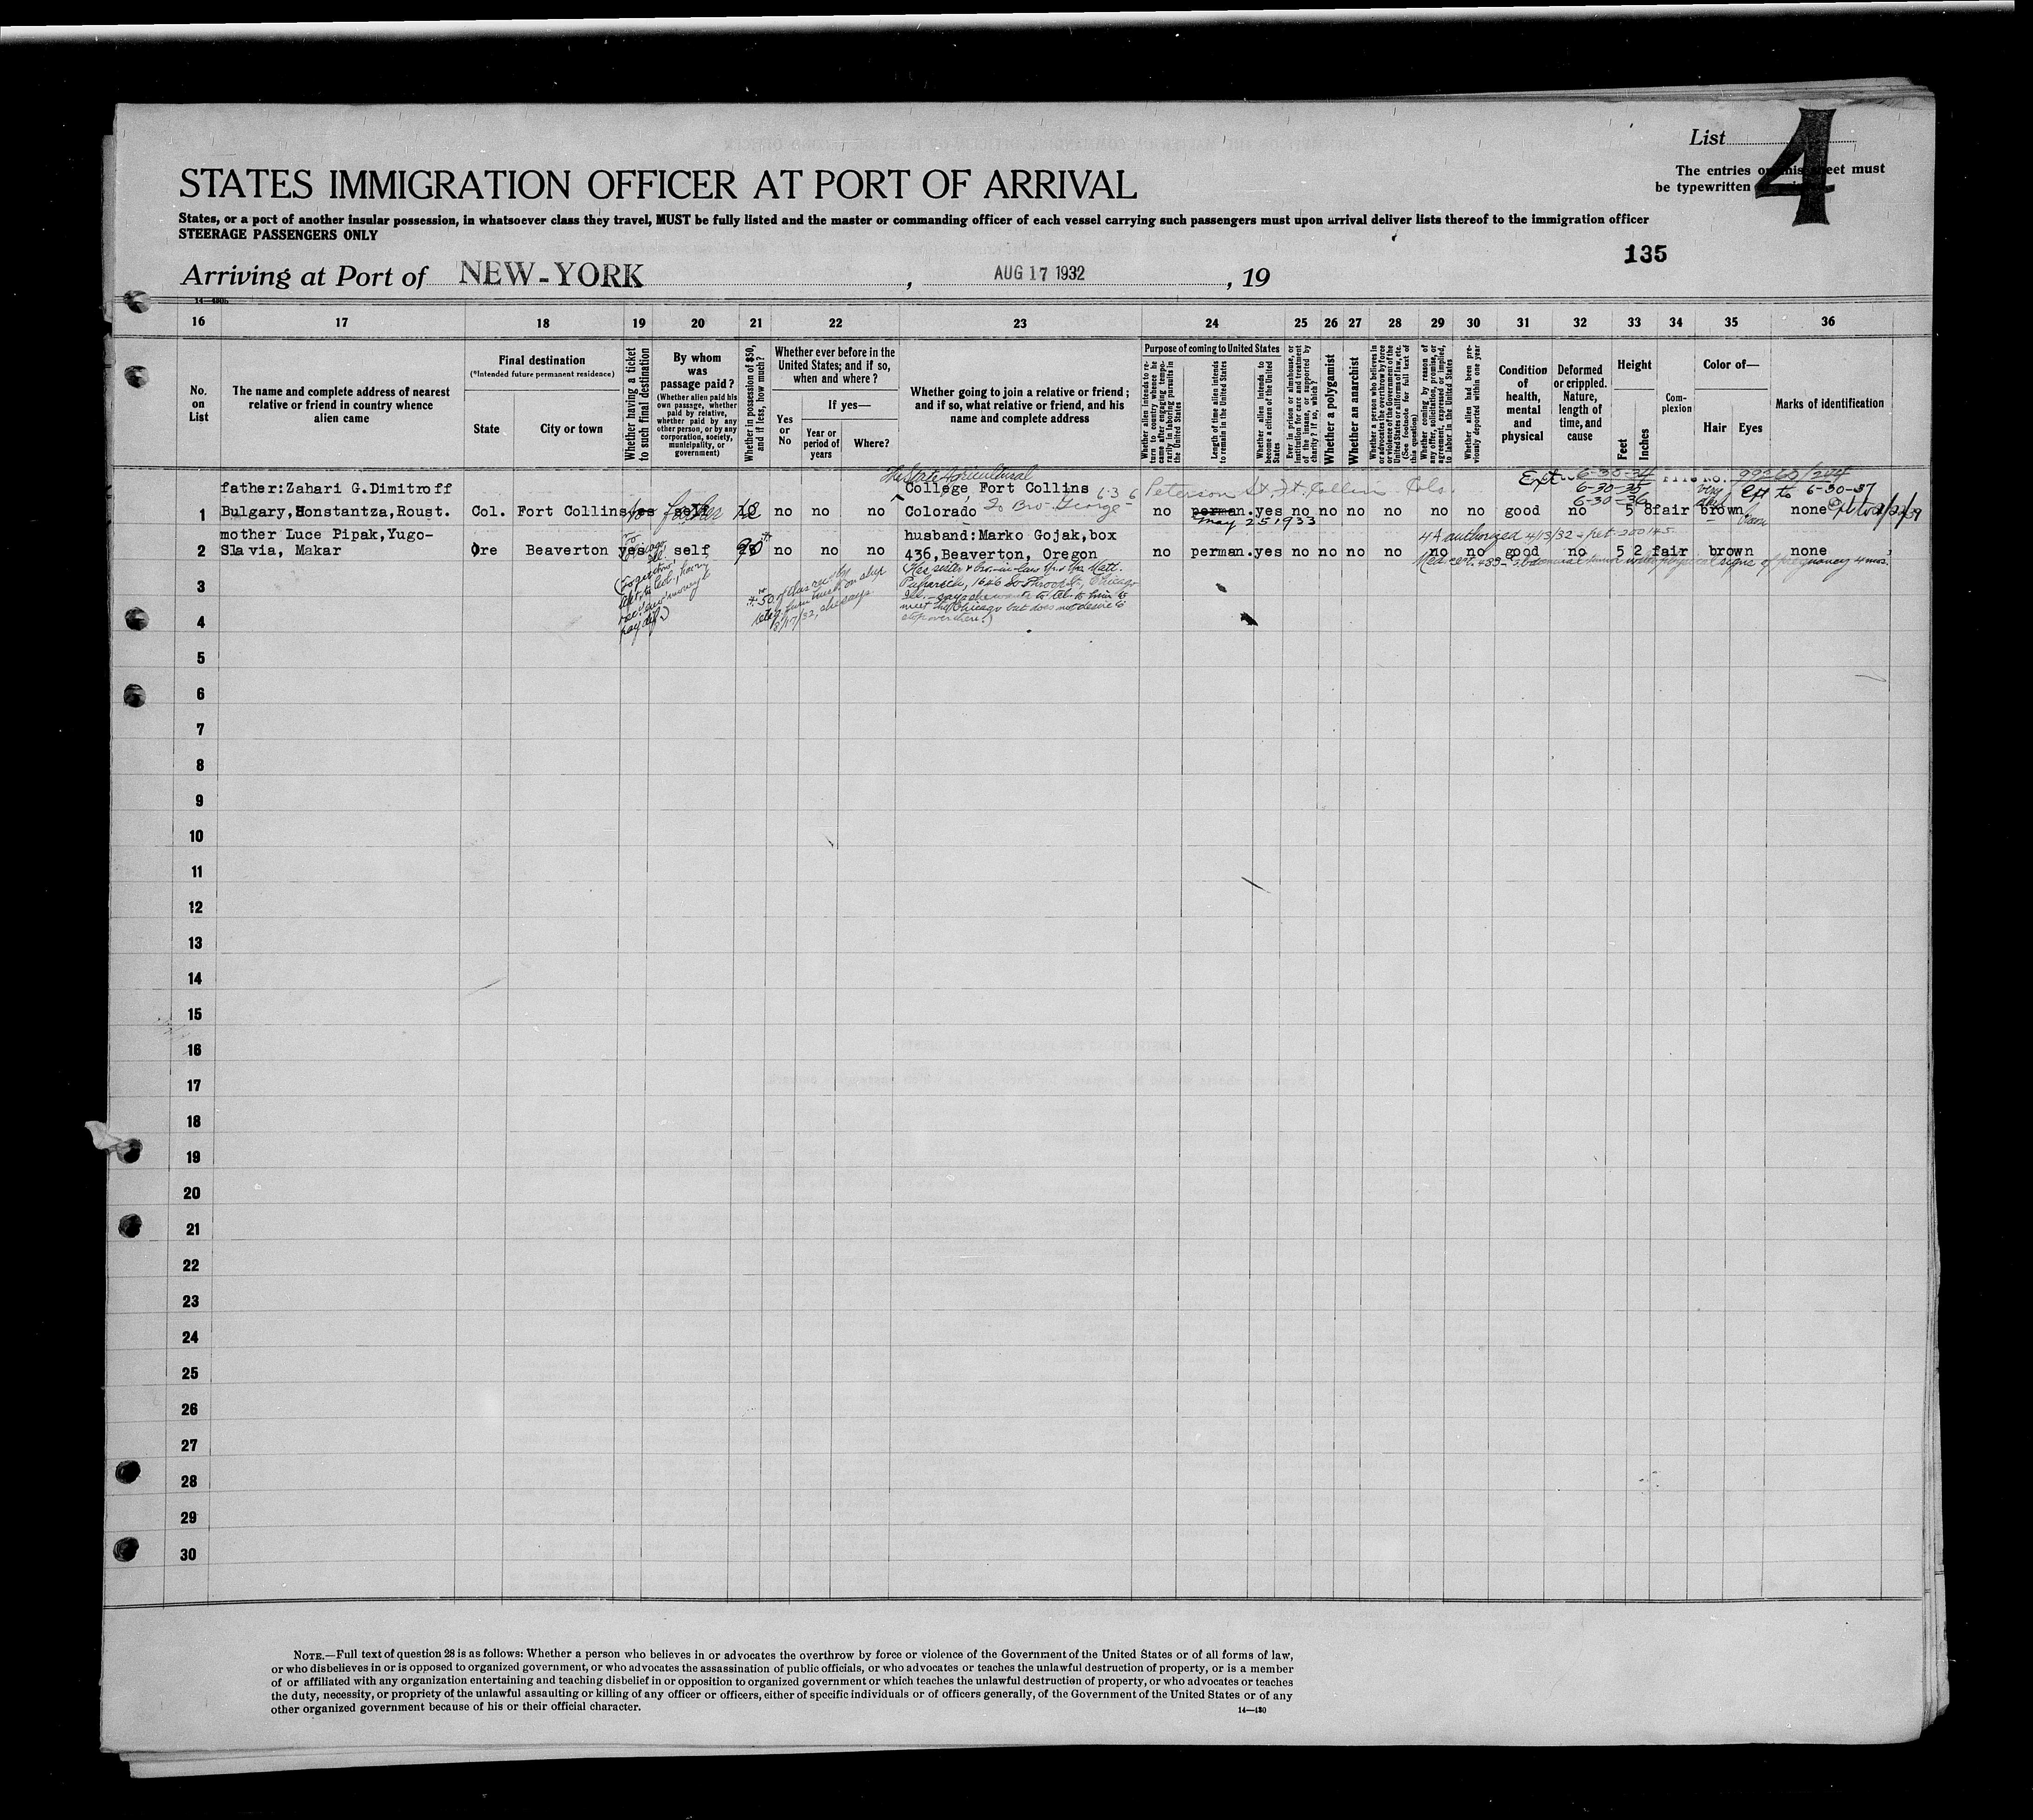 List
4
The entries on this sheet must
be typewritten
STATES IMMIGRATION OFFICER AT PORT OF ARRIVAL
States, or a port of another insular possession, in whatsoever class they travel, MUST be fully listed and the master or commanding officer of each vessel carrying such passengers must upon arrival deliver lists thereof to the immigration officer
STEERAGE PASSENGERS ONLY
135
Arriving at Port of NEW-YORK , AUG 17 1932 , 19
14—490b
16 17 18 19 20 21 22 23 24 25 26 27 28 29 30 31 32 33 34 35 36
No. on List
The name and complete address of nearest relative or friend in country whence alien came
Final destination
(*Intended future permanent residence)
State
City or town
Whether having a ticket to such final destination
By whom was passage paid?
(Whether alien paid his own passage, whether paid by relative, whether paid by any other person, or by any corporation, society, municipality, or government)
Whether in possession of $50, and if less, how much?
Whether ever before in the United States; and if so, when and where?
Yes or No
If yes—
Year or period of years
Where?
Whether going to join a relative or friend; and if so, what relative or friend, and his name and complete address
Purpose of coming to United States
Whether alien intends to return to country whence he came after engaging temporarily in laboring pursuits in the United States
Length of time alien intends to remain in the United States
Whether alien intends to become a citizen of the United States
Ever in prison or almshouse, or institution for care and treatment of the insane, or supported by charity? If so, which?
Whether a polygamist
Whether an anarchist
Whether a person who believes in or advocates the overthrow by force or violence of the Government of the United States or all forms of law, etc. (See footnote for full text of this question)
Whether coming by reason of any offer, solicitation, promise, or agreement, expressed or implied, to labor in the United States
Whether alien had been previously deported within one year
Condition of health, mental and physical
Deformed or crippled. Nature, length of time, and cause
Height
Feet
Inches
Complexion
Color of—
Hair
Eyes
Marks of identification
The State Agricultural
father:Zahari G.Dimitroff College Fort Collins 636 Peterson St. Ft. Collins Colo. Ext. 6-30-34 File No. 99260/244
6-30-35 very Ext to 6-30-37
6-30-36 dark
1 Bulgary,Konstantza,Roust. Col. Fort Collins yes no self father no no no Colorado To Bro George no perman. yes no no no no no no good no 5 8 fair brown none
May 25 1933
mother Luce Pipak,Yugo- husband:Marko Gojak,box 4A authorized 4/13/32 - pet. 200145
2 Slavia, Makar Ore Beaverton yes self no no no 436,Beaverton, Oregon no perman. yes no no no no no no good no 5 2 fair brown none
to Chicago Ill.
Med. cert. 433 - abdominal tumor with physical signs of pregnancy 4 mos.
(Has sister & bro.-in-law Mr. & Mrs. Matt.
1646 So Throop St., Chicago
Ill. - says she wants to tel. to him to
meet in Chicago but does not desire to
stop over there.)
8/17/32, she says
3
4
5
6
7
8
9
10
11
12
13
14
15
16
17
18
19
20
21
22
23
24
25
26
27
28
29
30
NOTE.—Full text of question 28 is as follows: Whether a person who believes in or advocates the overthrow by force or violence of the Government of the United States or of all forms of law,
or who disbelieves in or is opposed to organized government, or who advocates the assassination of public officials, or who advocates or teaches the unlawful destruction of property, or is a member
of or affiliated with any organization entertaining and teaching disbelief in or opposition to organized government or which teaches the unlawful destruction of property, or who advocates or teaches
the duty, necessity, or propriety of the unlawful assaulting or killing of any officer or officers, either of specific individuals or of officers generally, of the Government of the United States or of any
other organized government because of his or their official character.
14—430